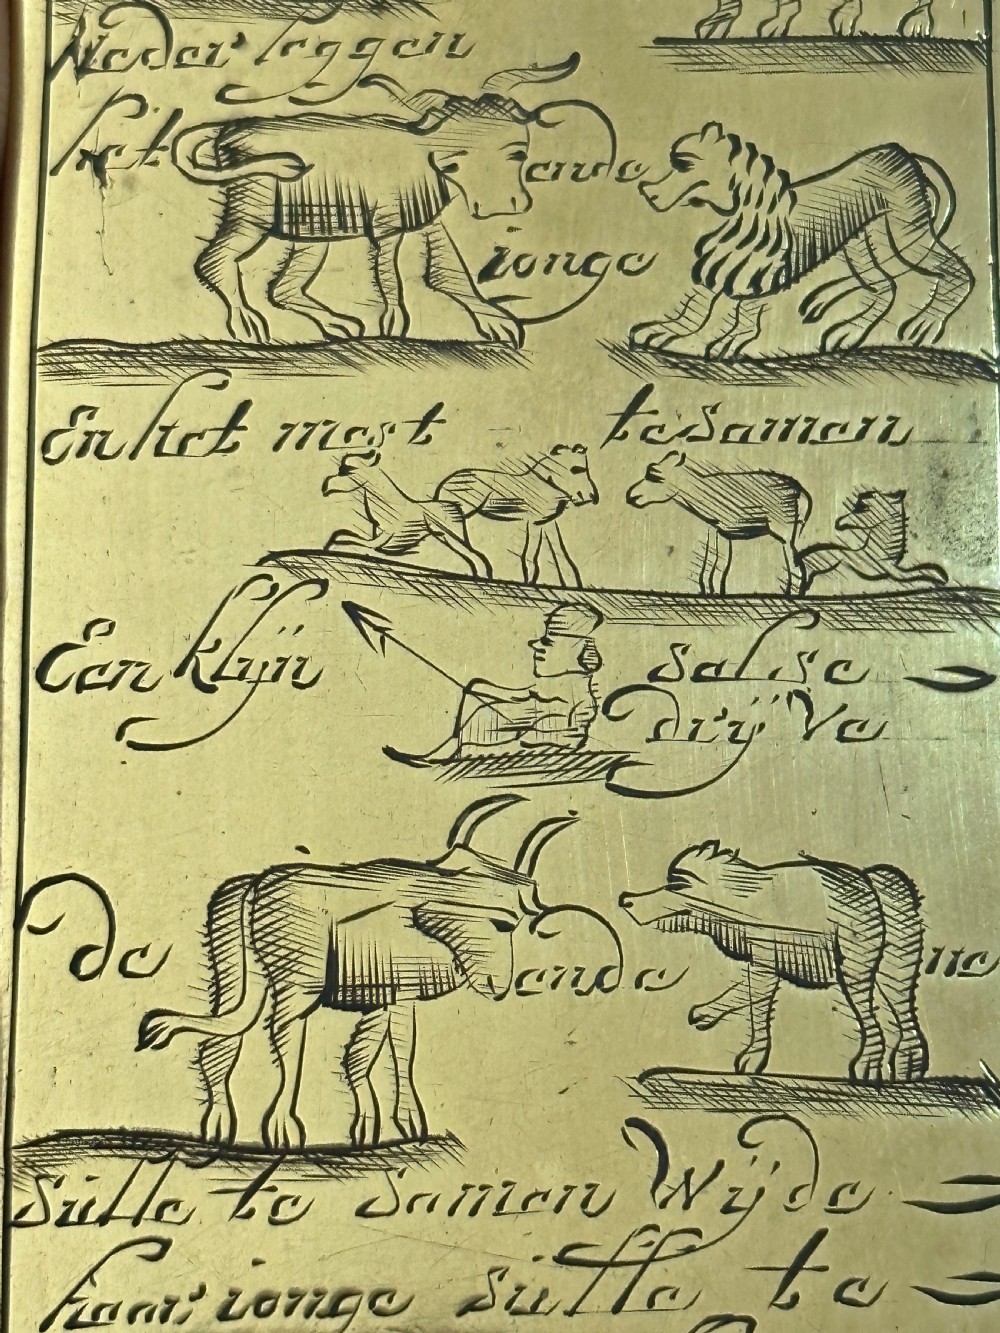 Neder leggen
het ende
ionge
En het mest te Samen
Een klijn salse
drijve
De ende ne
Sulle te Samen Wijde
haar ionge Sulle te